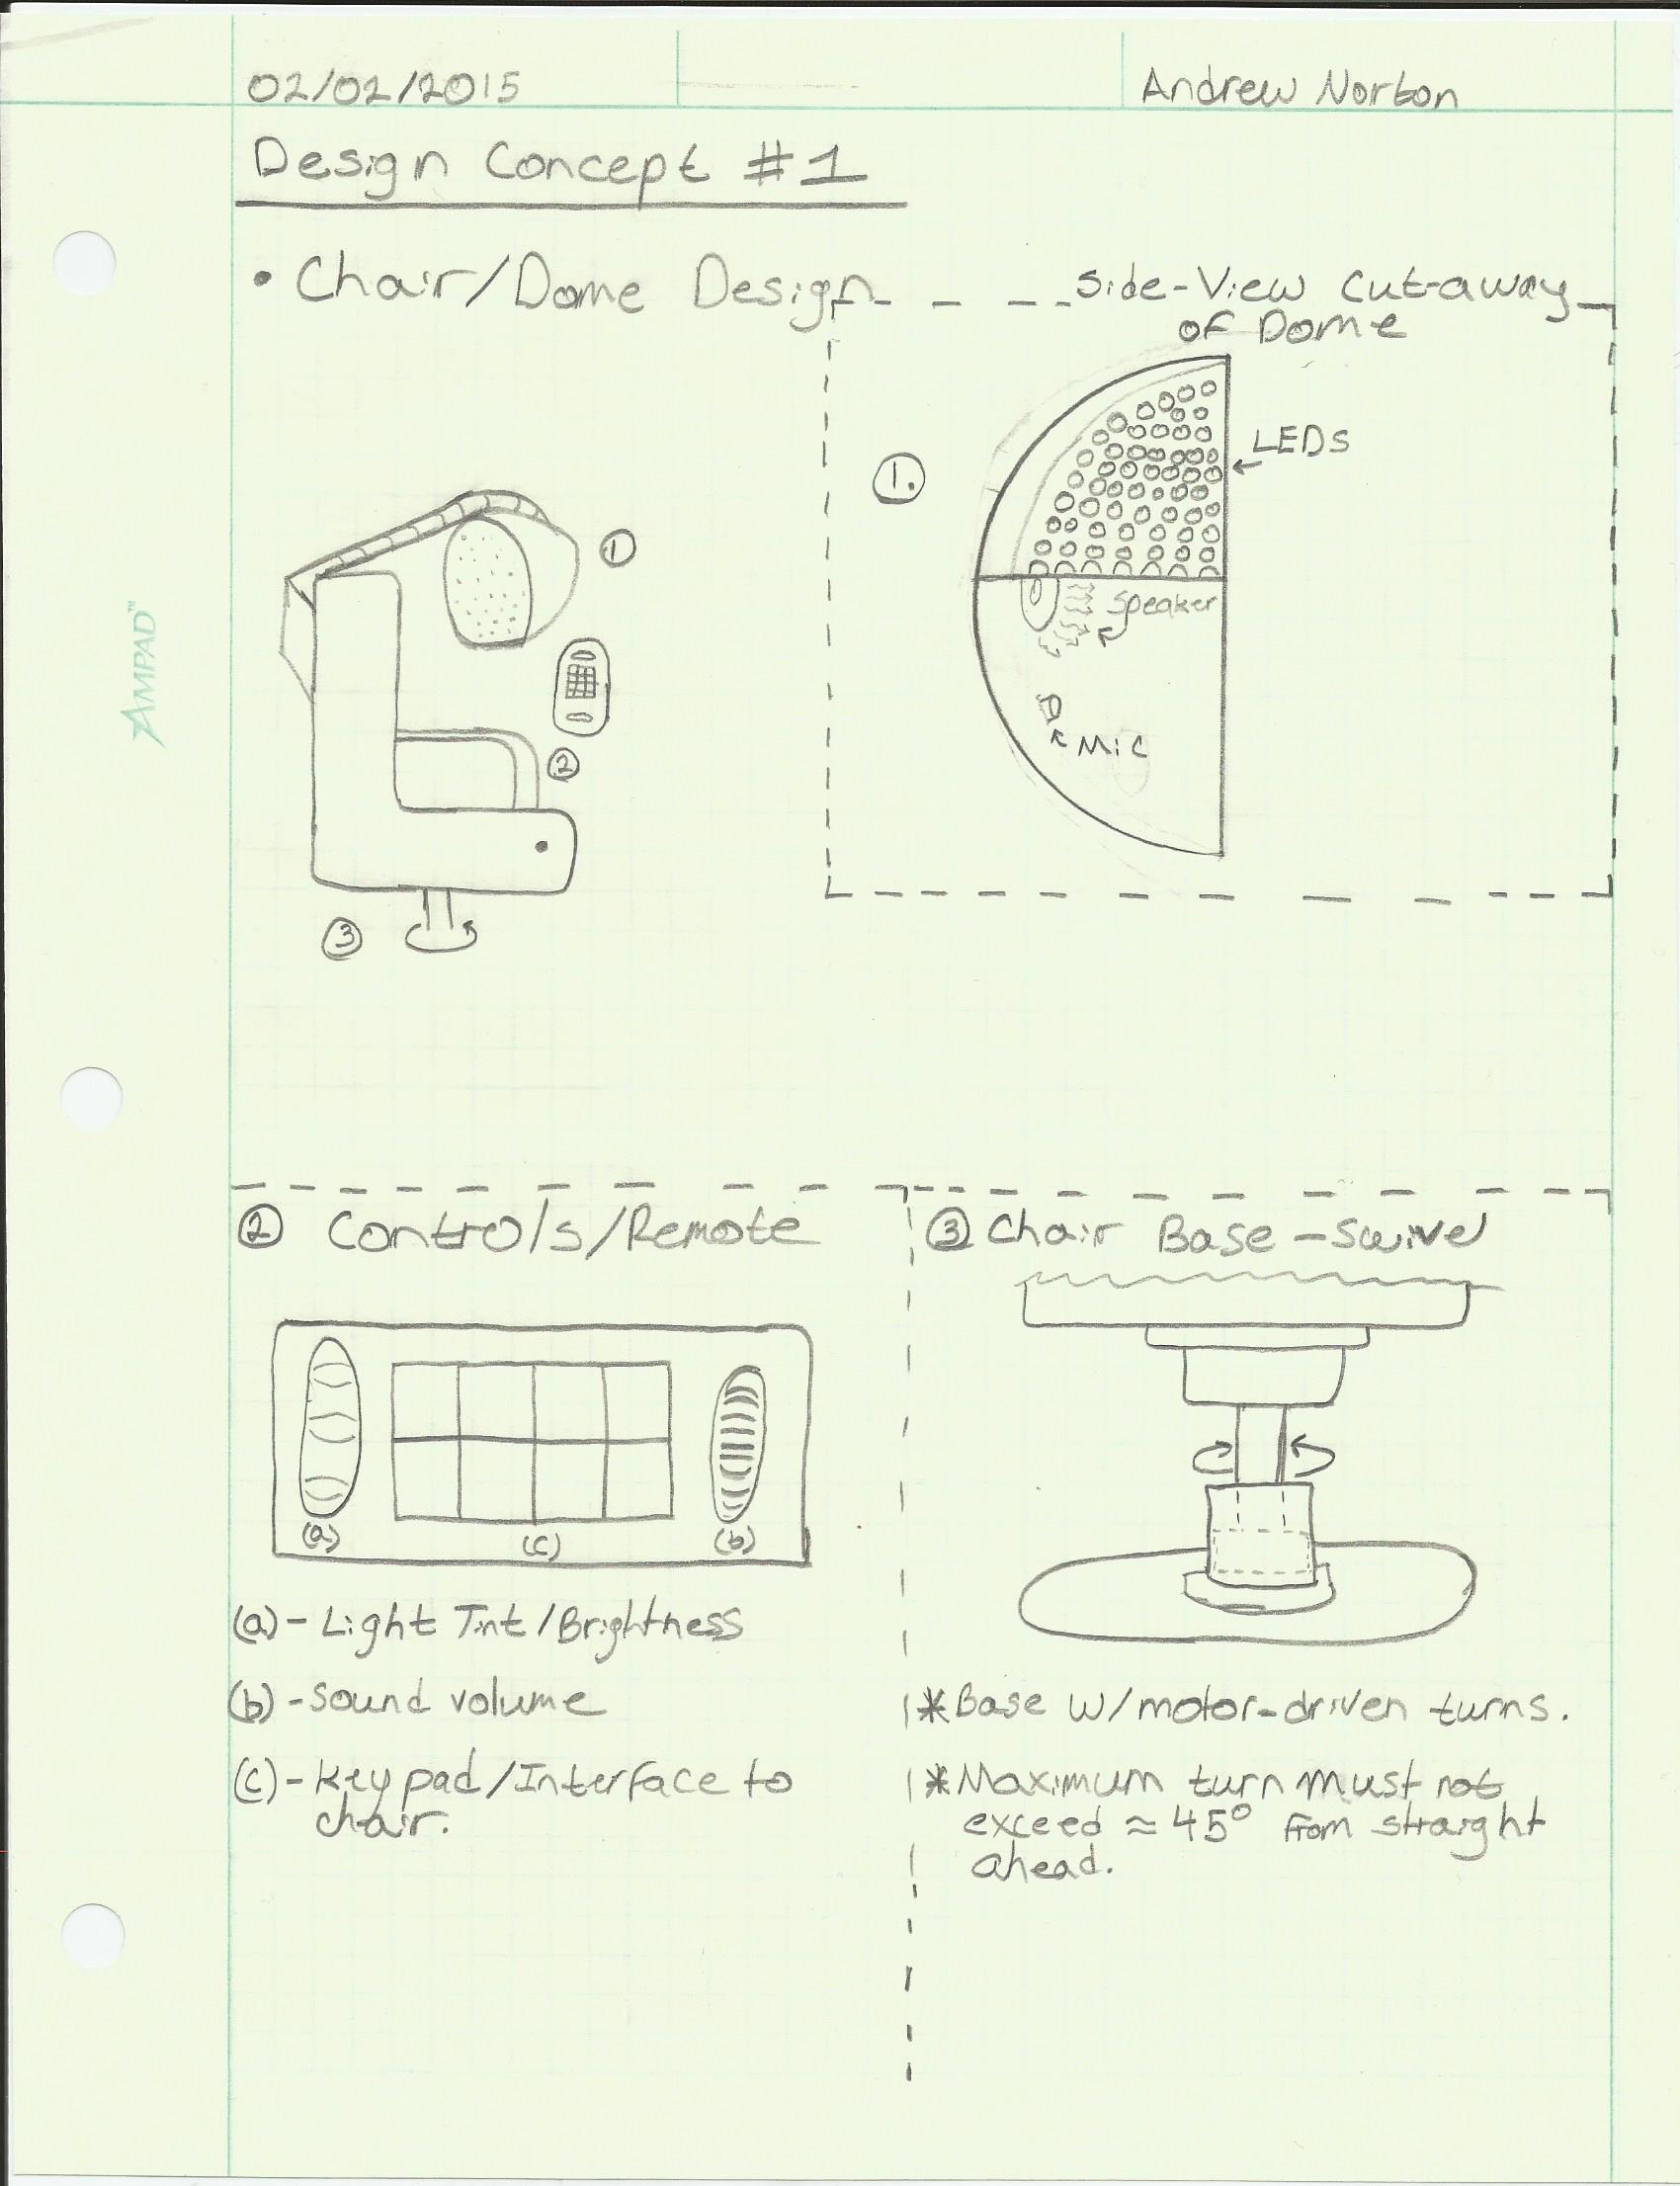 02/02/2015
Andrew Norton
Design Concept #1
• Chair/Dome Design
Side-View Cut-away
of Dome
1.
LEDs
Speaker
Mic
1
2
3
AMPAD™
2 Controls/Remote
(a)
(c)
(b)
(a)- Light Tint/Brightness
(b)-Sound volume
(c)-Keypad/Interface to
chair.
3 Chair Base-Swivel
*Base w/motor-driven turns.
*Maximum turn must not
exceed ≈45° from straight
ahead.